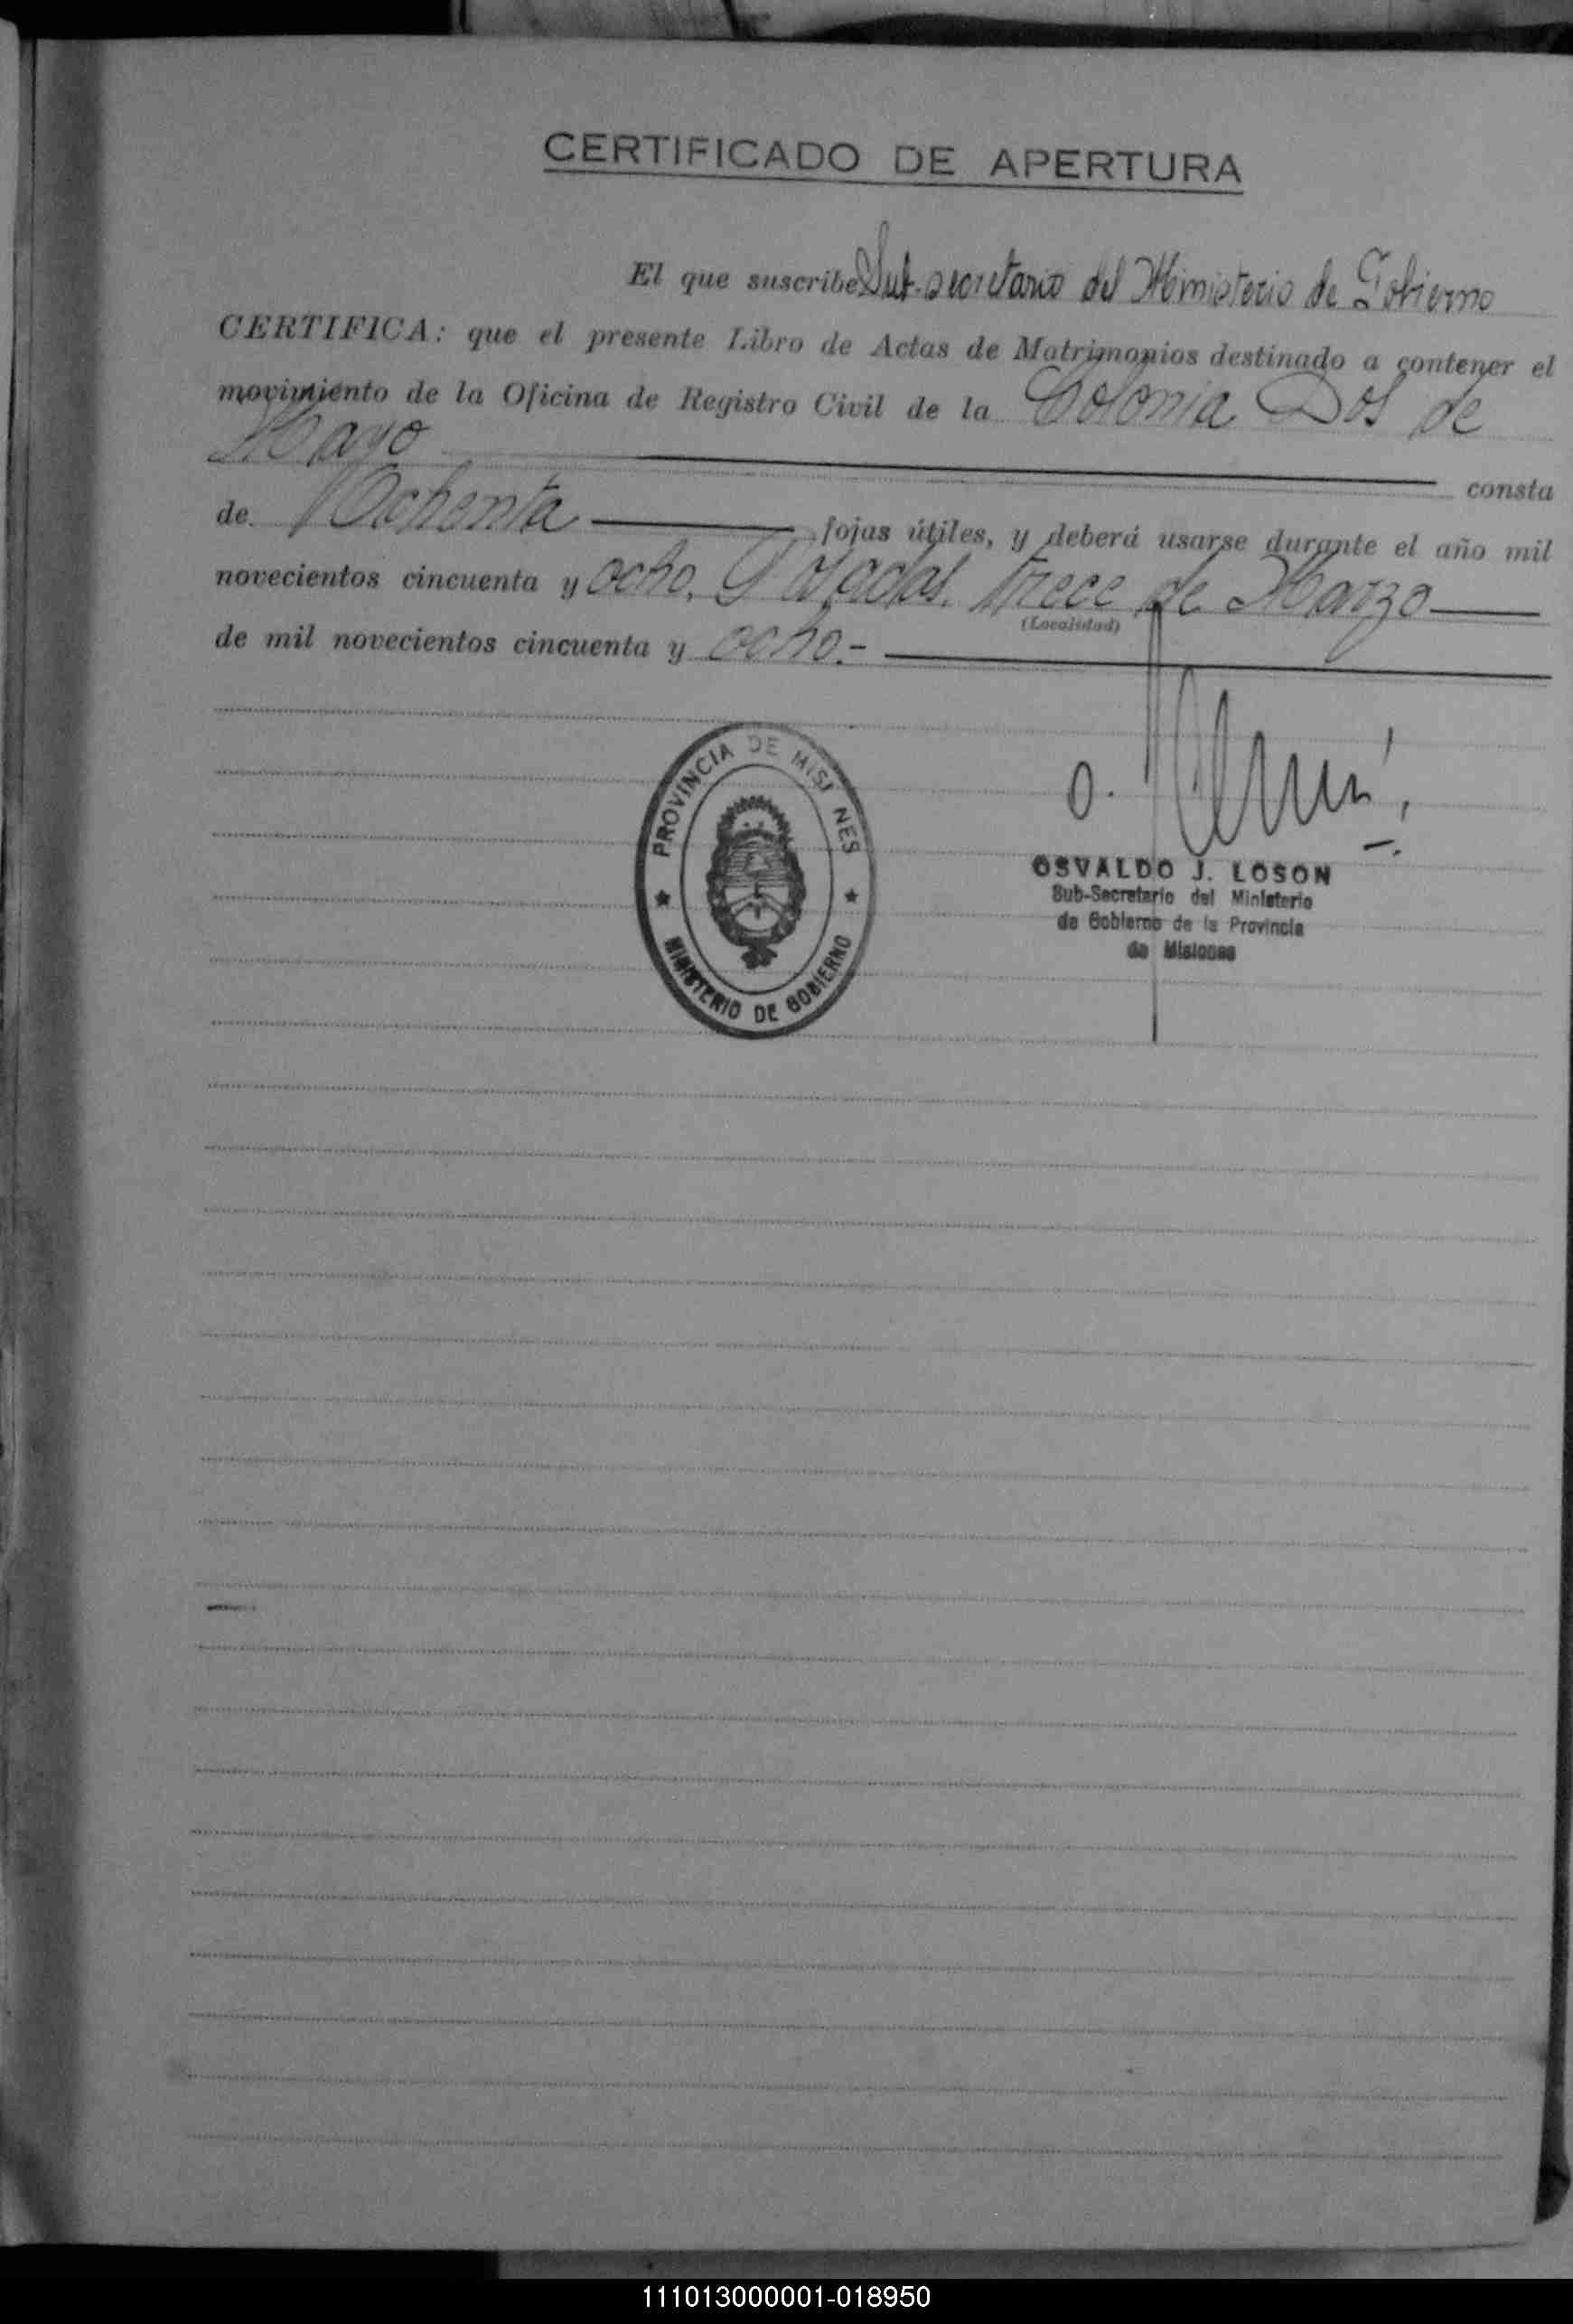 CERTIFICADO DE APERTURA
El que suscribe Sub-secretario del Ministerio de Gobierno
CERTIFICA: que el presente Libro de Actas de Matrimonios destinado a contener el
movimiento de la Oficina de Registro Civil de la Colonia Dos de
Mayo consta
de Ochenta fojas útiles, y deberá usarse durante el año mil
novecientos cincuenta y ocho. Posadas, trece de Marzo
(Localidad)
de mil novecientos cincuenta y ocho.-
PROVINCIA DE MISI NES
MINISTERIO DE GOBIERNO
OSVALDO J. LOSON
Sub-Secretario del Ministerio
de Gobierno de la Provincia
de Misiones
111013000001-018950